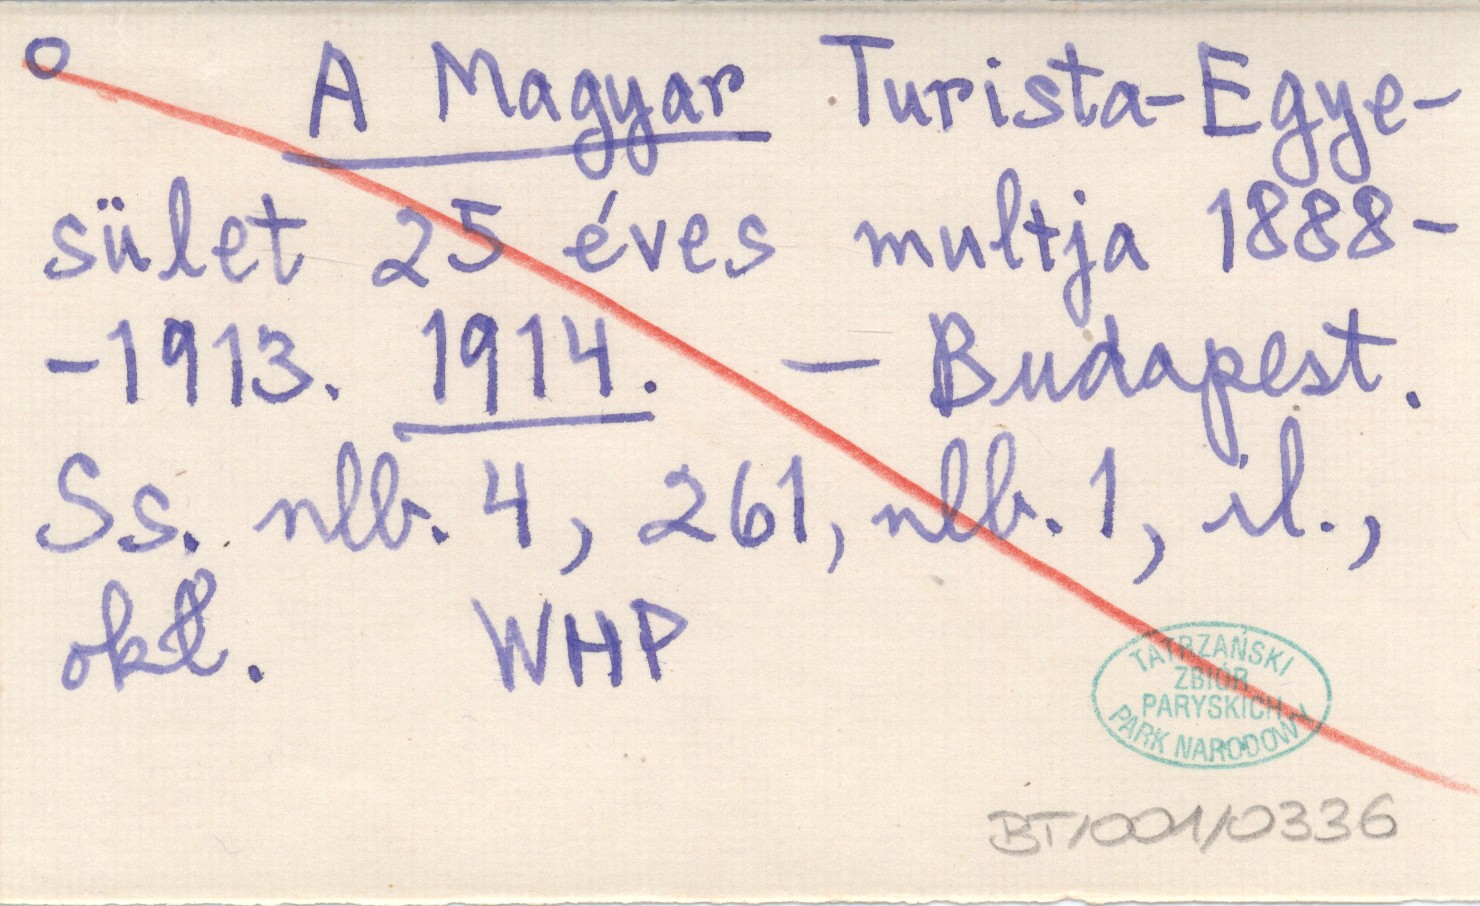 A Magyar Turista-Egye-
sület 25 éves multja 1888-
-1913. 1914. — Budapest.
Ss. nlb. 4, 261, nlb. 1, il.,
okł. WHP
TATRZAŃSKI
ZBIÓR
PARYSKICH
PARK NARODOWY
BT/001/0336